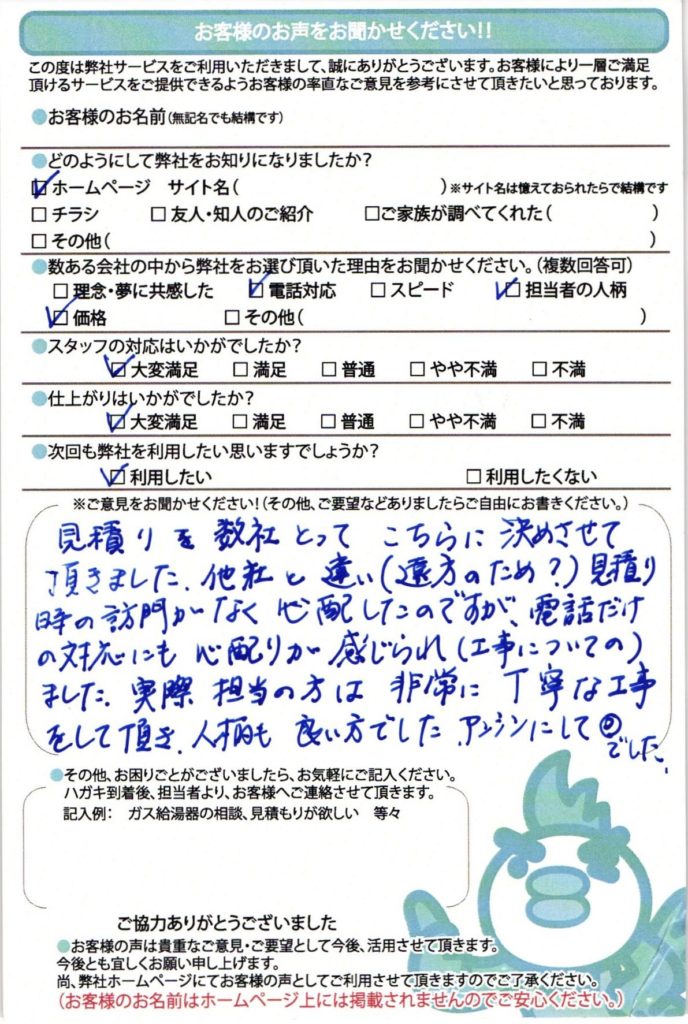 お客様のお声をお聞かせください!!
この度は弊社サービスをご利用いただきまして、誠にありがとうございます。お客様により一層ご満足
頂けるサービスをご提供できるようお客様の率直なご意見を参考にさせて頂きたいと思っております。
●お客様のお名前(無記名でも結構です)
●どのようにして弊社をお知りになりましたか?
☑ホームページ サイト名( )※サイト名は憶えておられたらで結構です
□チラシ □友人・知人のご紹介 □ご家族が調べてくれた( )
□その他( )
●数ある会社の中から弊社をお選び頂いた理由をお聞かせください。(複数回答可)
□理念・夢に共感した ☑電話対応 □スピード ☑担当者の人柄
☑価格 □その他( )
●スタッフの対応はいかがでしたか?
☑大変満足 □満足 □普通 □やや不満 □不満
●仕上がりはいかがでしたか?
☑大変満足 □満足 □普通 □やや不満 □不満
●次回も弊社を利用したい思いますでしょうか?
☑利用したい □利用したくない
※ご意見をお聞かせください!(その他、ご要望などありましたらご自由にお書きください。)
見積りを数社とって こちらに決めさせて
頂きました。他社と違い(遠方のため?)見積り
時の訪問がなく心配したのですが、電話だけ
の対応にも心配りが感じられ(工事についての)
ました。実際担当の方は非常に丁寧な工事
をして頂き、人柄も良い方でした。アンシンにして
でした。
●その他、お困りごとがございましたら、お気軽にご記入ください。
ハガキ到着後、担当者より、お客様へご連絡させて頂きます。
記入例: ガス給湯器の相談、見積もりが欲しい 等々
ご協力ありがとうございました
●お客様の声は貴重なご意見・ご要望として今後、活用させて頂きます。
今後とも宜しくお願い申し上げます。
尚、弊社ホームページにてお客様の声としてご利用させて頂きますのでご了承ください。
(お客様のお名前はホームページ上には掲載されませんのでご安心ください。)